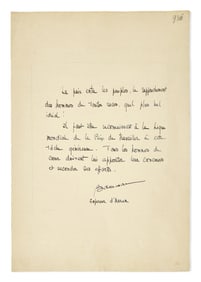 La paix entre les peuples, le rapprochement
des hommes de toutes races, quel plus bel
idéal !
Il faut être reconnaissant à la Ligue
mondiale de la Paix de à cette
idée généreuse. Tous les hommes de
coeur doivent lui apporter leur concours
et seconder ses efforts.